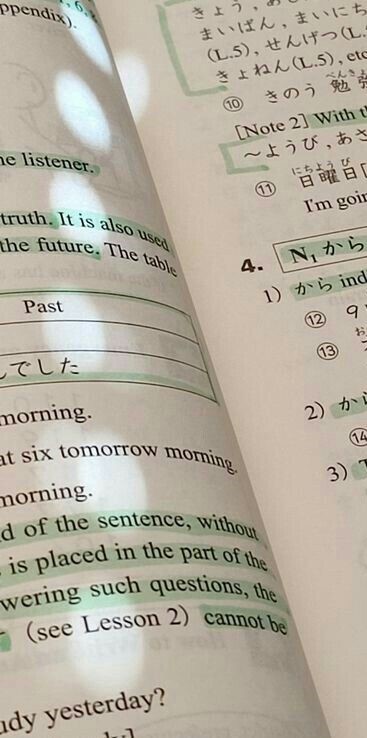 ppendix).
he listener.
truth. It is also used
the future. The table
Past
でした
morning.
at six tomorrow morning.
morning.
d of the sentence, without
is placed in the part of the
wering such questions, the
(see Lesson 2) cannot be
udy yesterday?
きょう,
まいばん, まいにち
(L.5), せんげつ(L.
きょねん(L.5), etc
⑩ きのう 勉
べんきょ
[Note 2] With t
〜ようび, あさ
にちようび
⑪ 日曜日[
I'm goin
4. N₁ から
1) から ind
⑫ 9
⑬
2) か
⑭
3)